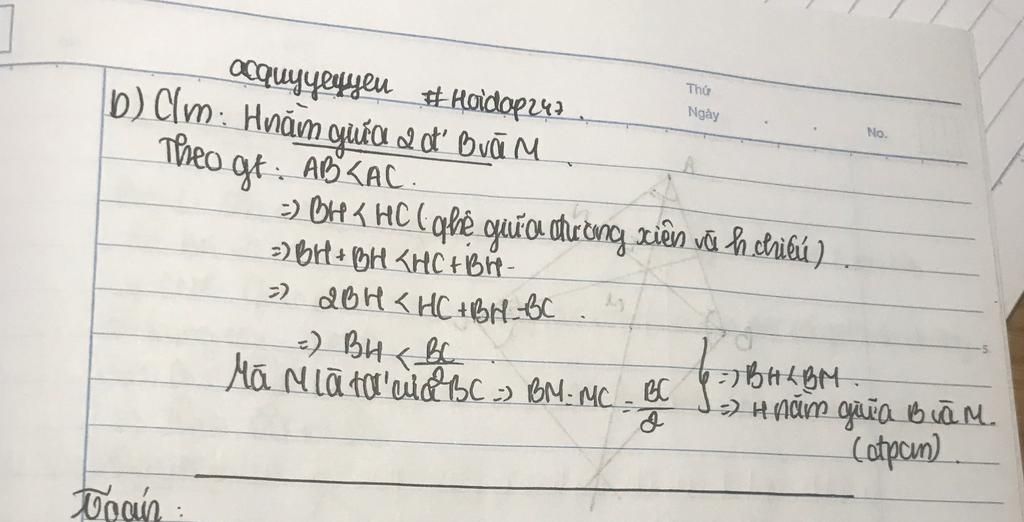 acquyyeuyeu #Hoidap247.
Thứ
Ngày
No.
b) C/m: H nằm giữa 2 đ' B và M.
Theo gt: AB < AC.
=> BH < HC (qhệ giữa đường xiên và h.chiếu).
=> BH + BH < HC + BH
=> 2BH < HC + BH = BC.
=> BH < BC/2.
Mà M là tđ' của BC => BM = MC = BC/2
=> BH < BM.
=> H nằm giữa B và M.
(đpcm).
A
5